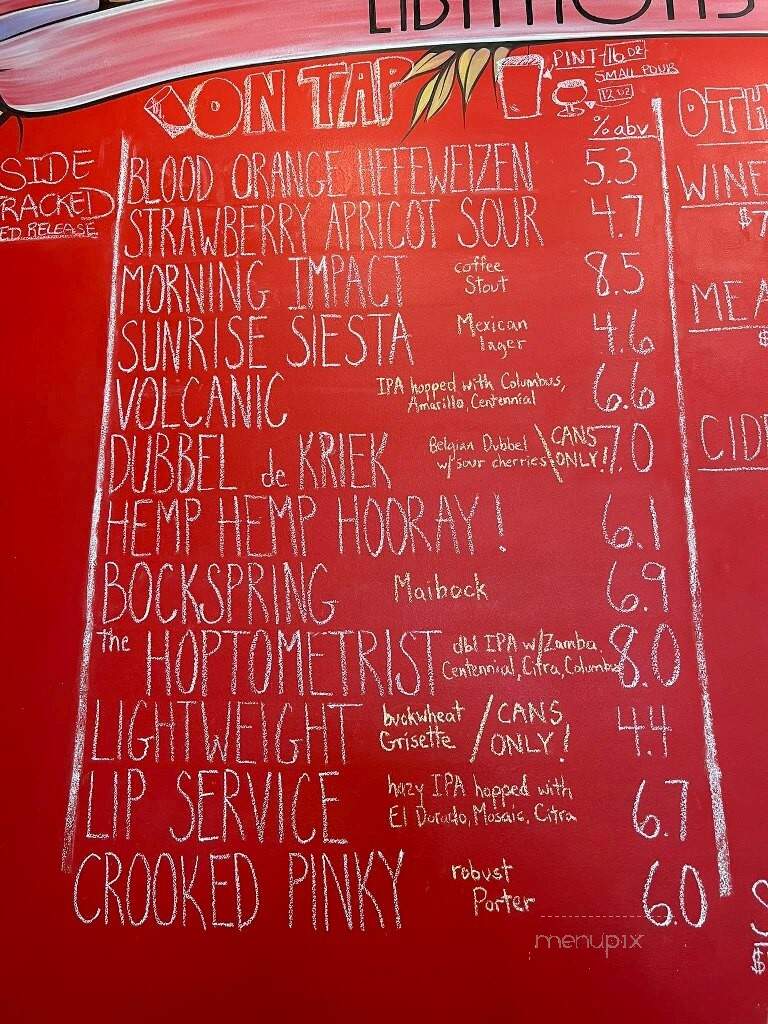 ON TAP
PINT- 16 OZ
SMALL POUR
12 OZ
% abv
SIDE
RACKED
ED RELEASE
BLOOD ORANGE HEFEWEIZEN 5.3
STRAWBERRY APRICOT SOUR 4.7
MORNING IMPACT coffee Stout 8.5
SUNRISE SIESTA Mexican lager 4.6
VOLCANIC IPA hopped with Columbus, Amarillo, Centennial 6.6
DUBBEL de KRIEK Belgian Dubbel w/sour cherries \ CANS ONLY! 7.0
HEMP HEMP HOORAY! 6.1
BOCKSPRING Maibock 6.9
the HOPTOMETRIST dbl IPA w/Zamba, Centennial, Citra, Columbus 8.0
LIGHTWEIGHT buckwheat Grisette / CANS ONLY! 4.4
LIP SERVICE hazy IPA hopped with El Dorado, Mosaic, Citra 6.7
CROOKED PINKY robust Porter 6.0
OTH
WINE
$7
MEA
$
CID
$
menupix